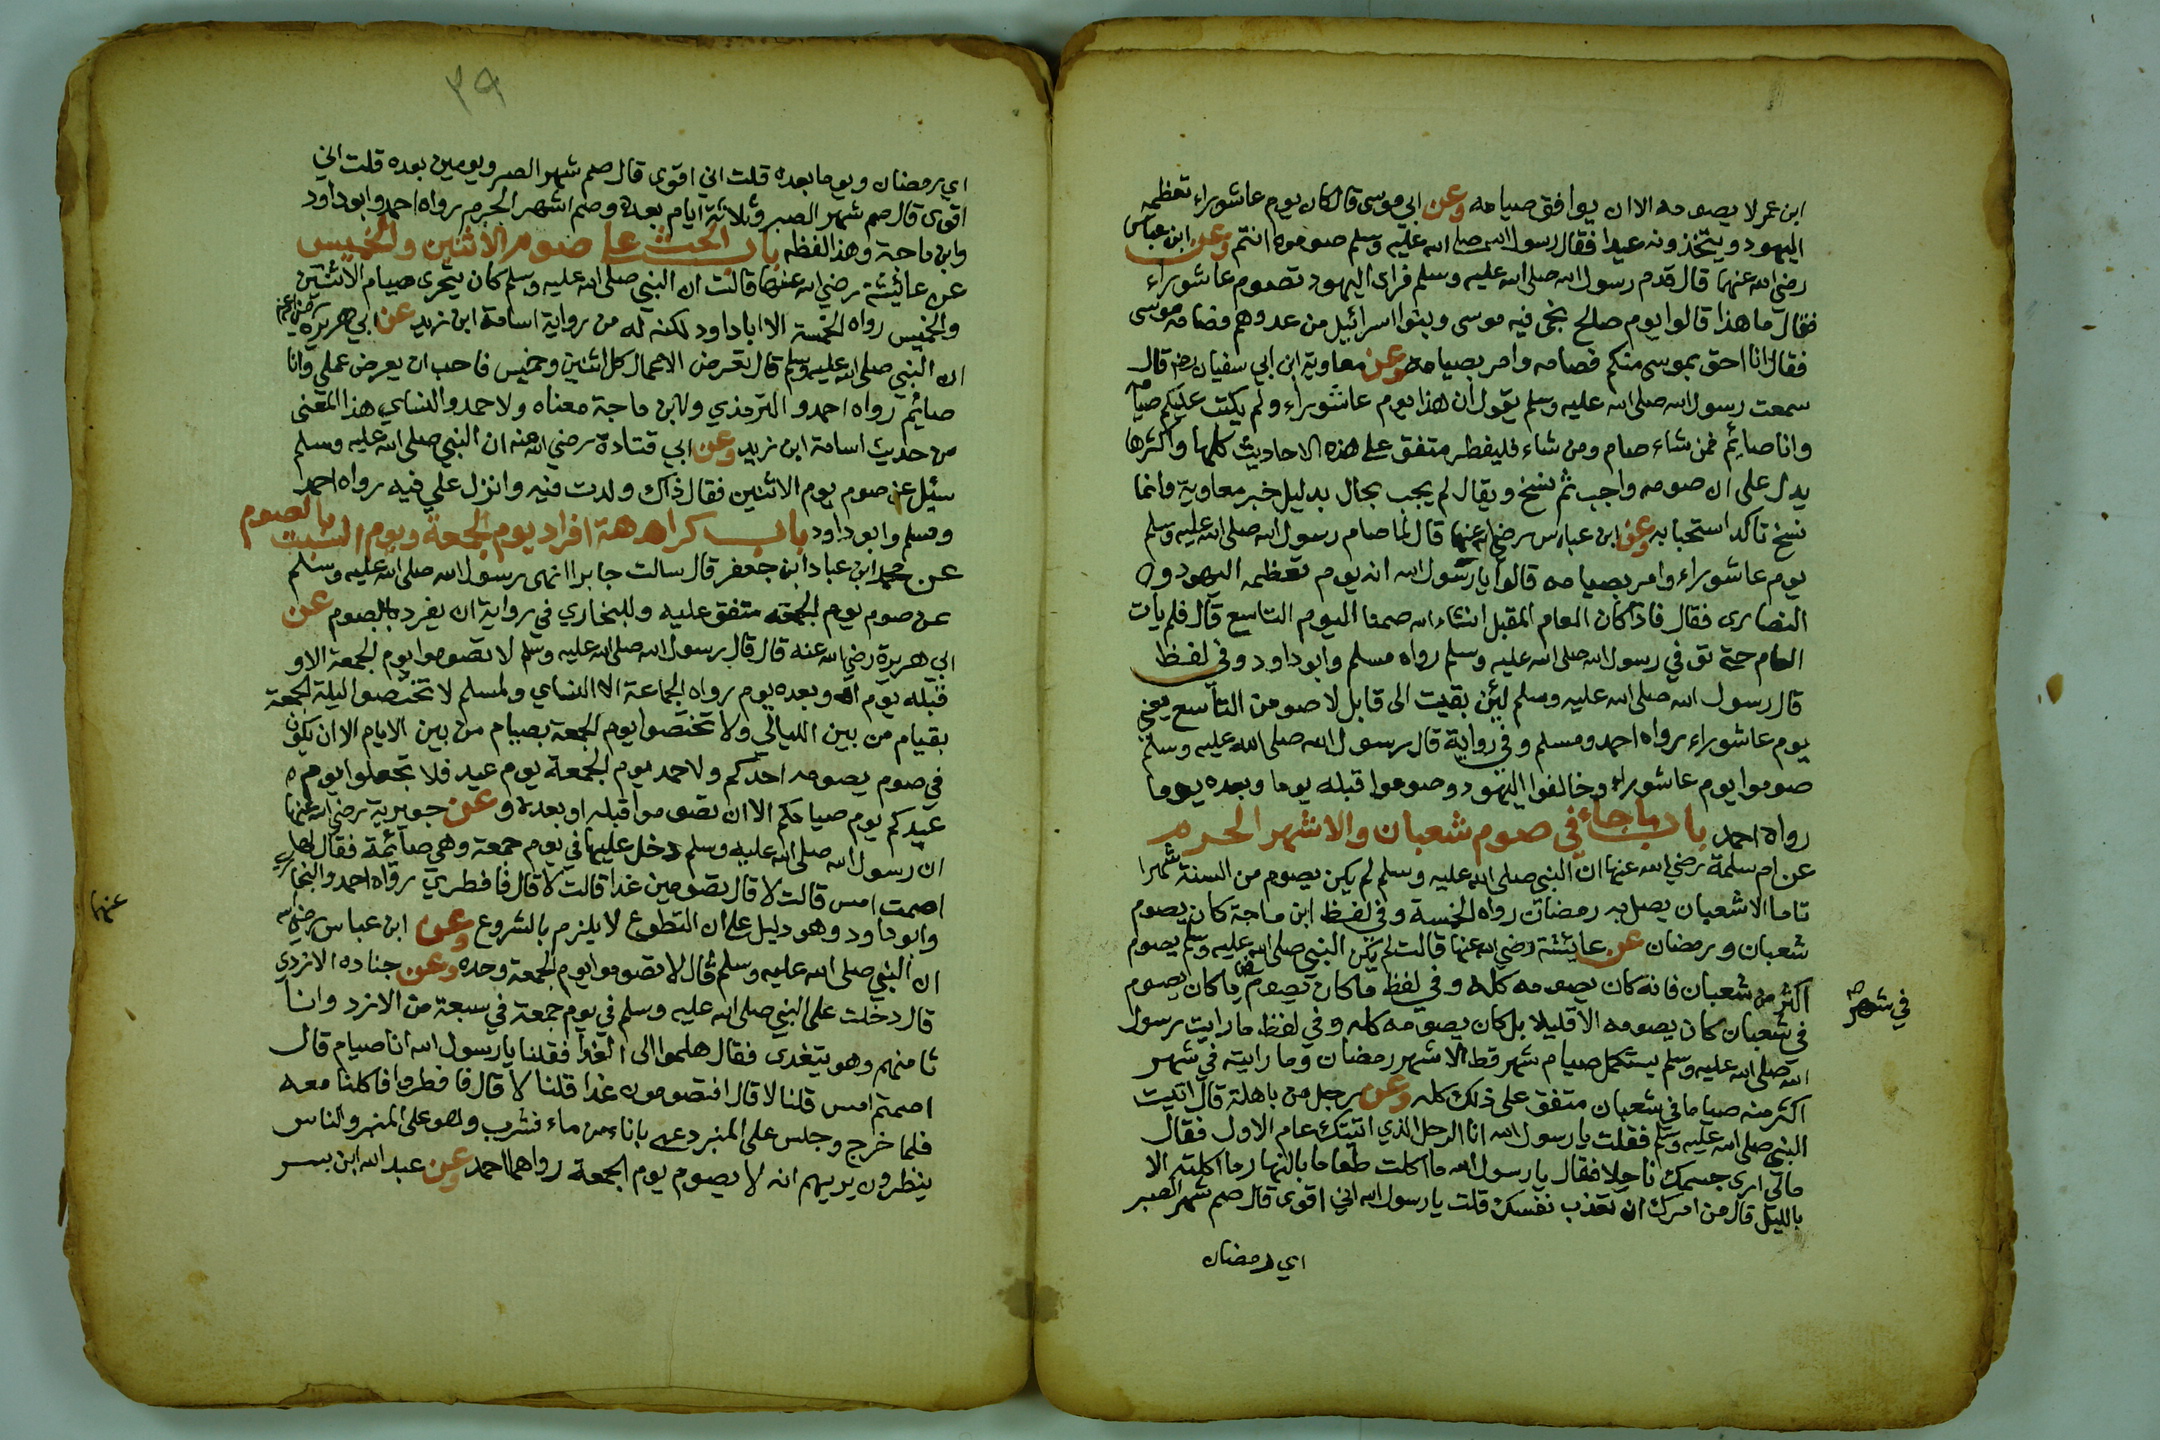 ابن عمر لا يصومه الا ان يوافق صيامه وعن ابي موسى قال كان يوم عاشوراء تعظمه
اليهود ويتخذونه عيدا فقال رسول الله صلى الله عليه وسلم صوموه انتم وعن ابن عباس
رضي الله عنهما قال قدم رسول الله صلى الله عليه وسلم فراى اليهود تصوم عاشوراء
فقال ما هذا قالوا يوم صالح نجى فيه موسى وبنوا اسرائيل من عدوهم فصامه موسى
فقال انا احق بموسى منكم فصامه وامر بصيامه وعن معاوية ابن ابي سفيان رضه قال
سمعت رسول الله صلى الله عليه وسلم يقول ان هذا يوم عاشوراء ولم يكتب عليكم صيامه
وانا صائم فمن شاء صام ومن شاء فليفطر متفق على هذه الاحاديث كلها واكثرها
يدل على ان صومه واجب ثم نسخ ويقال لم يجب بحال بدليل خبر معاوية وانما
نسخ تاكد استحبابه وعن ابن عباس رضي الله عنهما قال لما صام رسول الله صلى الله عليه وسلم
يوم عاشوراء وامر بصيامه قالوا يا رسول الله انه يوم تعظمه اليهود و
النصارى فقال فاذا كان العام المقبل انشاء الله صمنا اليوم التاسع قال فلم يات
العام حتى توفي رسول الله صلى الله عليه وسلم رواه مسلم وابو داود وفي لفظ
قال رسول الله صلى الله عليه وسلم لئن بقيت الى قابل لاصومن التاسع يعني
يوم عاشوراء رواه احمد ومسلم وفي رواية قال رسول الله صلى الله عليه وسلم
صوموا يوم عاشوراء وخالفوا اليهود وصوموا قبله يوما وبعده يوما
رواه احمد باب ما جاء في صوم شعبان والاشهر الحرم
عن ام سلمة رضي الله عنها ان النبي صلى الله عليه وسلم لم يكن يصوم من السنة شهرا
تاما الا شعبان يصل به رمضان رواه الخمسة وفي لفظ ابن ماجة كان يصوم
شعبان ورمضان عن عايشة رضي الله عنها قالت لم يكن النبي صلى الله عليه وسلم يصوم
اكثر من شعبان فانه كان يصومه كله وفي لفظ ما كان يصوم ما كان يصوم
في شهر
في شعبان كان يصومه الا قليلا بل كان يصومه كله وفي لفظ ما رايت رسول
الله صلى الله عليه وسلم يستكمل صيام شهر قط الا شهر رمضان وما رايته في شهر
اكثر منه صياما في شعبان متفق على ذلك كله وعن رجل من باهلة قال اتيت
النبي صلى الله عليه وسلم فقلت يا رسول الله انا الرجل الذي اتيتك عام الاول فقال
مالي ارى جسمك ناحلا فقال يا رسول الله ما اكلت طعاما بالنهار ما اكلته الا
بالليل قال من امرك ان تعذب نفسك قلت يا رسول الله اني اقوى قال صم شهر الصبر
اي رمضان
٣٩
اي رمضان ويوما بعده قلت اني اقوى قال صم شهر الصبر ويومين بعده قلت اني
اقوى قال صم شهر الصبر وثلاثة ايام بعده وصم اشهر الحرم رواه احمد وابو داود
وابن ماجة وهذا لفظه باب الحث على صوم الاثنين والخميس
عن عائشة رضي الله عنها قالت ان النبي صلى الله عليه وسلم كان يتحرى صيام الاثنين
والخميس رواه الخمسة الا ابا داود لكنه له من رواية اسامة ابن زيد عن ابي هريرة رضي الله عنه
ان النبي صلى الله عليه وسلم قال تعرض الاعمال كل اثنين وخميس فاحب ان يعرض عملي وانا
صائم رواه احمد والترمذي ولابن ماجة معناه ولاحمد والنساي هذا المعنى
من حديث اسامة ابن زيد وعن ابي قتادة رضي الله عنه ان النبي صلى الله عليه وسلم
سئل عن صوم يوم الاثنين فقال ذاك ولدت فيه وانزل علي فيه رواه احمد
ومسلم وابو داود باب كراهة افراد يوم الجمعة ويوم السبت بالصوم
عن محمد ابن عباد ابن جعفر قال سالت جابرا انهى رسول الله صلى الله عليه وسلم
عن صوم يوم الجمعة متفق عليه وللبخاري في رواية ان يفرد بالصوم عن
ابي هريرة رضي الله عنه قال قال رسول الله صلى الله عليه وسلم لا تصوموا يوم الجمعة الا و
قبله يوم او بعده يوم رواه الجماعة الا النساي ولمسلم لا تختصوا ليلة الجمعة
بقيام من بين الليالي ولا تختصوا يوم الجمعة بصيام من بين الايام الا ان يكون
في صوم يصومه احدكم ولاحمد يوم الجمعة يوم عيد فلا تجعلوا يوم
عيدكم يوم صيامكم الا ان تصوموا قبله او بعده وعن جويرية رضي الله عنها
ان رسول الله صلى الله عليه وسلم دخل عليها في يوم جمعة وهي صائمة فقال لها
اصمت امس قالت لا قال تصومين غدا قالت لا قال فافطري رواه احمد والبخاري
وابو داود وهو دليل على ان التطوع لا يلزم بالشروع وعن ابن عباس رضي الله
عنهما
ان النبي صلى الله عليه وسلم قال لا تصوموا يوم الجمعة وحده وعن جناده الازدي
قال دخلت على النبي صلى الله عليه وسلم في يوم جمعة في سبعة من الازد وانا
ثامنهم وهو يتغدى فقال هلموا الى الغدا فقلنا يا رسول الله انا صيام قال
اصمتم امس قلنا لا قال افتصومون غدا قلنا لا قال فافطروا فاكلنا معه
فلما خرج وجلس على المنبر دعى باناء من ماء فشرب وهو على المنبر والناس
ينظرون يريهم انه لا يصوم يوم الجمعة رواهما احمد وعن عبد الله ابن بسر